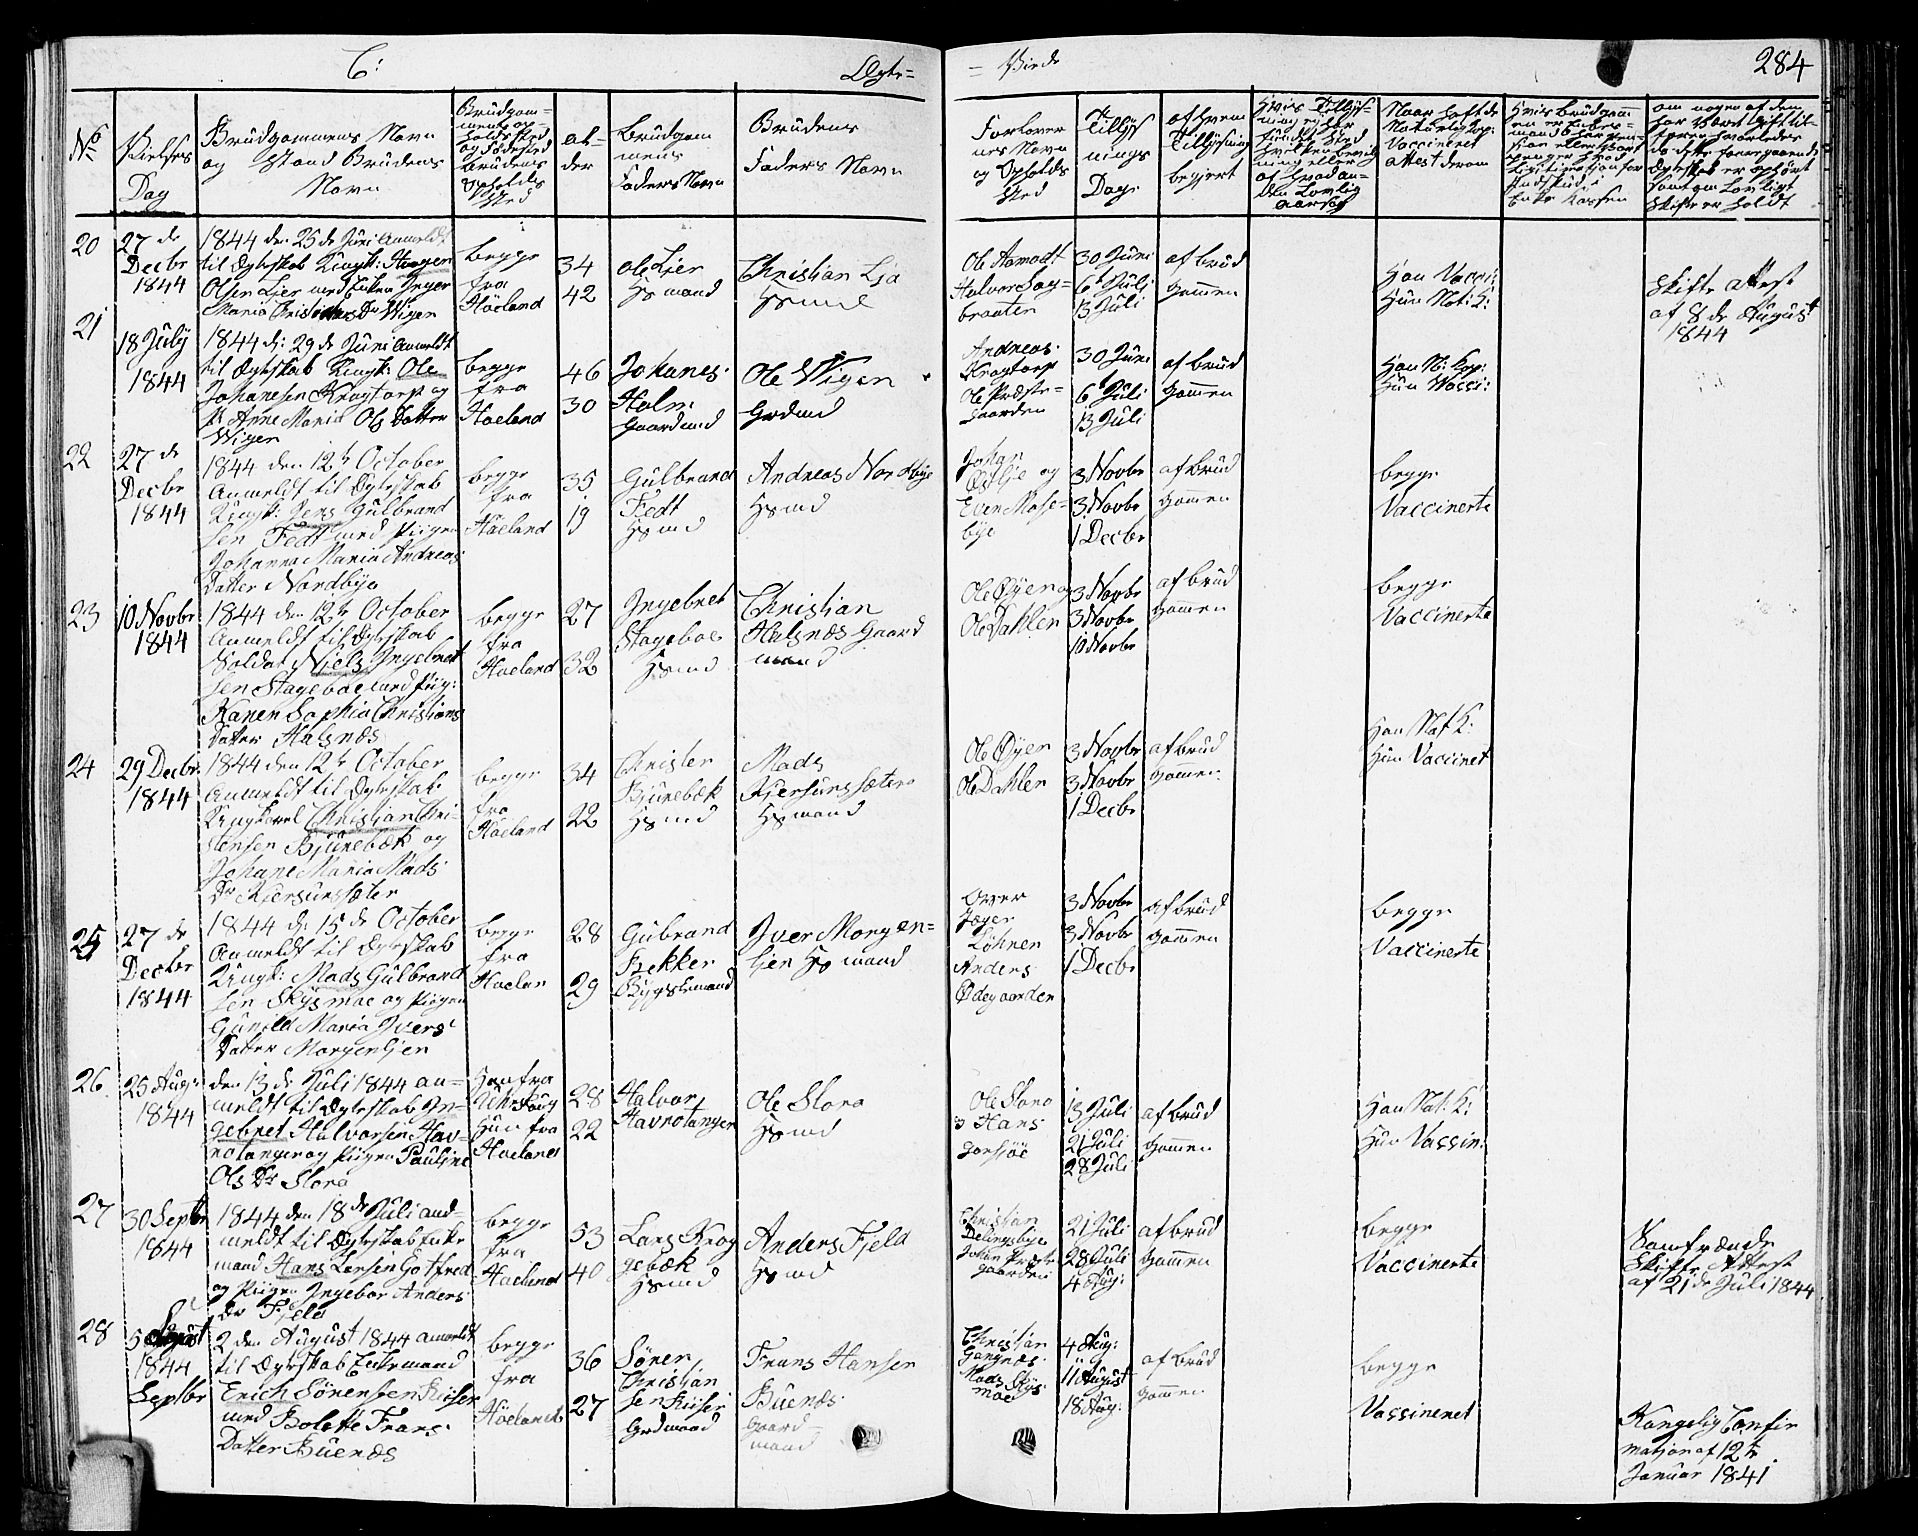 6:
Ægte=
= Viede
284
No
Vielses
Dag
Brudgommens Navn
og Stand Brudens
Navn
Brudgom=
mens op=
holdssted
og Fødested
brudens
Opholds
Sted
al=
der
Brudgom
mens
Faders Navn
Brudens
Faders Navn
Forlover
nes Navn
og Opholds
Sted
Tillys
nings
Dage
af hvem
Tillysning
begjert
Naar hafte de
Naturlig Kop:
Vaccineret
attest derom
20
27 de
Decbr
1844
1844 den 25 de Juni Anmeldt
til Ægteskab Ungk: Haagen
Olsen Lier med Enken Inger
Maria Christians Dr Wigen
begge
fra
Höeland
34
42
Ole Lier
Hsmand
Christian Lja
Hsmd
Ole Aamodt
Halvor Sag=
braaten
30 Juni
6 Juli
13 Juli
af brud
gommen
Han Vacci:
Hun Nat: K:
Skifte attest
af 8 de August
1844
21
18 July
1844
1844 d: 29 de Juni Anmeldt
til Ægteskab Ungk: Ole
Johanesen Krogtorp og
P: Anne Maria Ols Datter
Wigen
begge
fra
Hoeland
46
30
Johanes
Holm
Gaardmd
Ole Wigen
Grdmd
Andreas
Krogtorp
Ole Præste=
gaarden
30 Juni
6 Juli
13 Juli
af brud
gommen
Han N: Kop:
Hun Vacci:
22
27 de
Decbr
1844
1844 den 12te October
Anmeldt til Ægteskab
Ungk: Jens Gulbrand
sen Fedt med Pigen
Johanna Maria Andreas
Datter Nordbye
begge
fra
Hoeland
35
19
Gulbrand
Fedt
Hsmd
Andreas Nordbye
Hsmd
Johan
Østlje og
Even Mose=
bye
3 Novbr
3 Novbr
1 Decbr
af brud
gomen
begge
Vaccinerte
23
10 Novbr
1844
1844 den 12te October
Anmeldt til Ægteskab
Soldat Niels Ingebret
sen Stageboe med Pig:
Karen Sophia Christians
Datter Halsnæs
begge
fra
Hoeland
27
32
Ingebret
Stageboe
Hsmd
Christian
Halsnæs Gaard
mand
Ole Øyen og
Ole Dahlen
3 Novbr
3 Novbr
10 Novbr
af brud
gommen
begge
Vaccinerte
24
29 Decbr
1844
1844 den 12te October
Anmeldt til Ægteskab
Ungkarl Christian Chri=
stensen Bjurebæk og
Johane Maria Mads
Dr Kjersunssæter
begge
fra
Hoeland
34
22
Christen
Bjurebæk
Hsmd
Mads
Kjersunssæter
Hsmand
Ole Øyen
Ole Dahlen
3 Novbr
3 Novbr
1 Decbr
af brud
gommen
Han Nat K:
Hun Vaccinet
25
27 de
Decbr
1844
1844 d: 15 de October
Anmeldt til Ægteskab
Ungk: Mads Gulbrand
sen Skysmoe og Pigen
Gunild Maria Ivers
Datter Morgenljen
begge
fra
Hoelan
28
29
Gubrand
Bekker
Bygselmand
Iver Morgen=
ljen Hsmand
Jæger
Löhnen
Anders
Ødegaarden
3 Novbr
3 Novbr
1 Decbr
af brud
gommen
begge
Vaccinerte
26
25 Aug:
1844
den 13 de Juli 1844 an=
meldt til Ægteskab In=
gebret Halvorsen Hav=
notangen og Pigen Pauline
Ols Dr Slora
Han fra
Urskoug
Hun fra
Hoeland
28
22
Halvor
Havnotangen
Ole Slora
Hsmd
Ole Slora
Hans
Gorsjöe
13 Juli
21 Juli
28 Juli
af brud
gommen
Han Nat: K:
Hun Vassin:
27
30 Septbr
1844
1844 den 18 de Juli and=
meldt til Ægteskab Enke
mand Hans Larsen Gotfred
og Pigen Ingebor Anders
dr Fjeld
begge
fra
Hoeland
53
40
Lars Krog
gebæk
Hsmd
Anders Fjeld
Hsmd
Christian
Delingsbye
Johan Præste
gaarden
21 Juli
28 Juli
4 Aug:
af brud
gommen
begge
Vaccinerte
Samfrænde
Skifte Attest
af 21 de Juli 1844
28
5 August
1844
Septbr
2 den August 1844 Anmeldt
til Ægteskab Enkemand
Erich Sörensen Riiser
med Bolette Frans
Datter Buenæs
begge
fra
Höeland
36
27
Sören
Christian
sen Riiser
Grdmand
Frans Hansen
Buenæs
Gaard
mand
Christian
Gangnæs
Mads Skys
moe
4 Aug:
11 August
18 Aug:
af brud
gommen
begge
Vassineret
Kongelig Confir
mation af 12te
Januar 1841